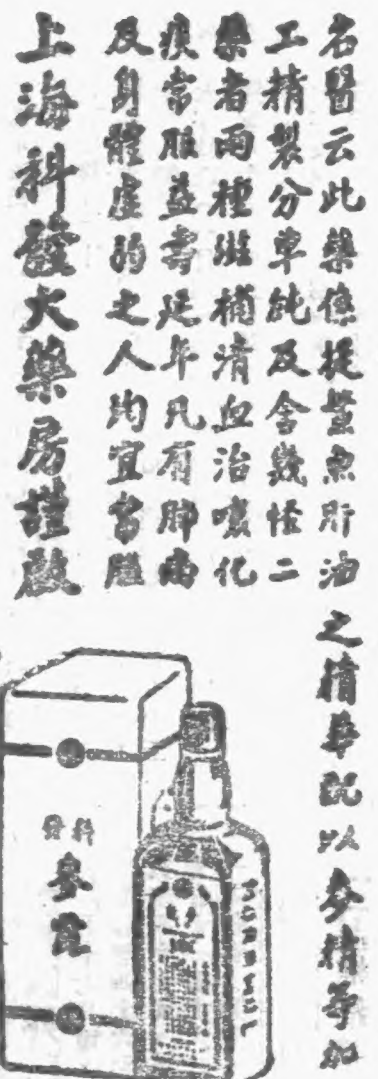 名醫云此藥係提鱉魚肝油之精華配以參精等加
工精製分單純及含幾怪二
藥者兩種滋補清血治嗽化
痰常服益壽延年凡有肺
及身體虛弱之人均宜常服
上海科發大藥房謹啟
科發